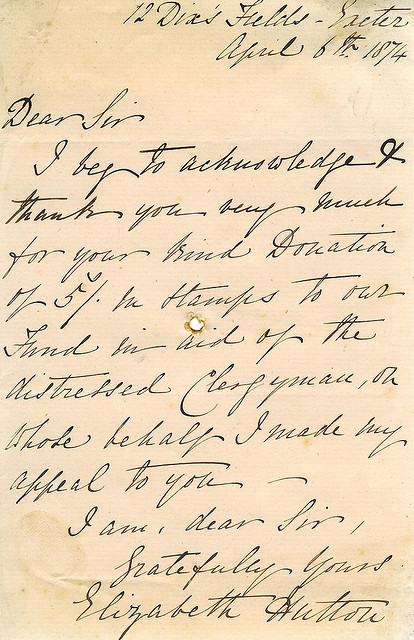 12 Dix's Fields - Exeter
April 6th. 1874
Dear Sir
I beg to acknowledge &
thank you very much
for your kind Donation
of 5/. in stamps to our
Fund in aid of the
distressed Clergyman, on
whose behalf I made my
appeal to you —
I am, dear Sir,
Gratefully Yours
Elizabeth Hutton